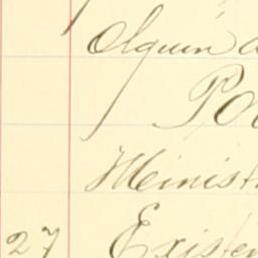 Olguin a
Po
Minist
27 Existen